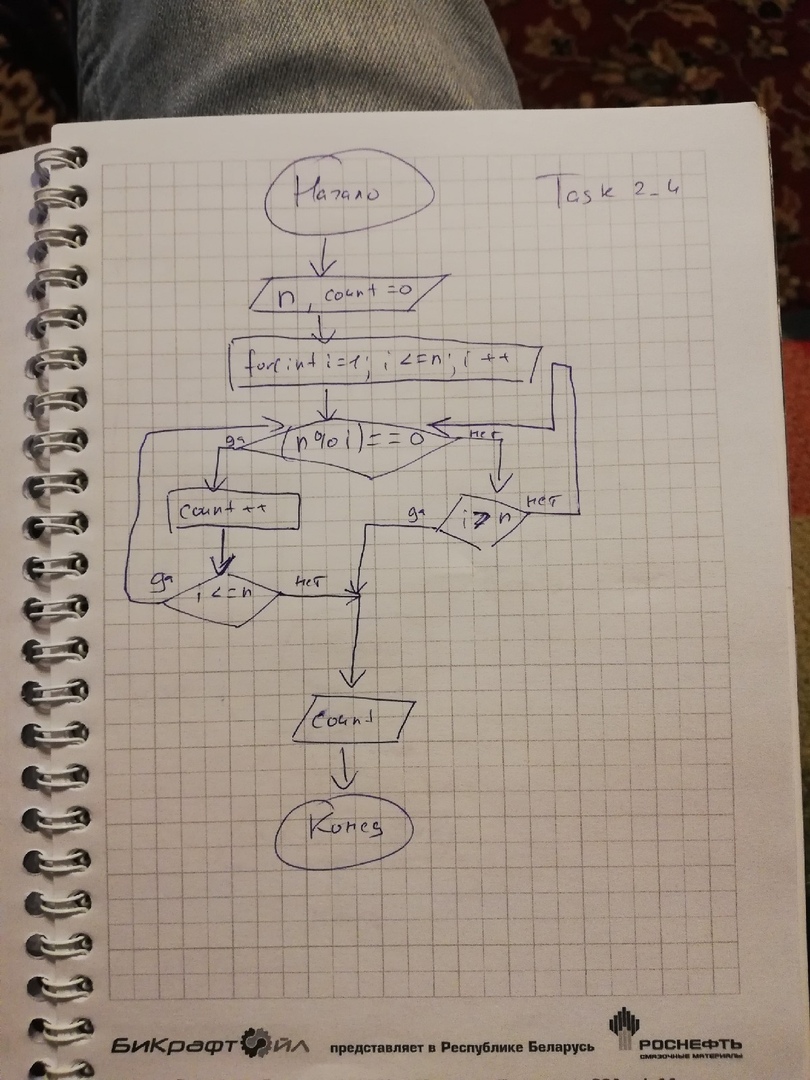 Начало
Task 2_4
n, count =0
for(int i=1; i <=n; i ++
да
(n%i)==0
нет
count ++
да
i > n
нет
да
i <=n
нет
count
Конец
БиКрафтОйл
представляет в Республике Беларусь
РОСНЕФТЬ
СМАЗОЧНЫЕ МАТЕРИАЛЫ